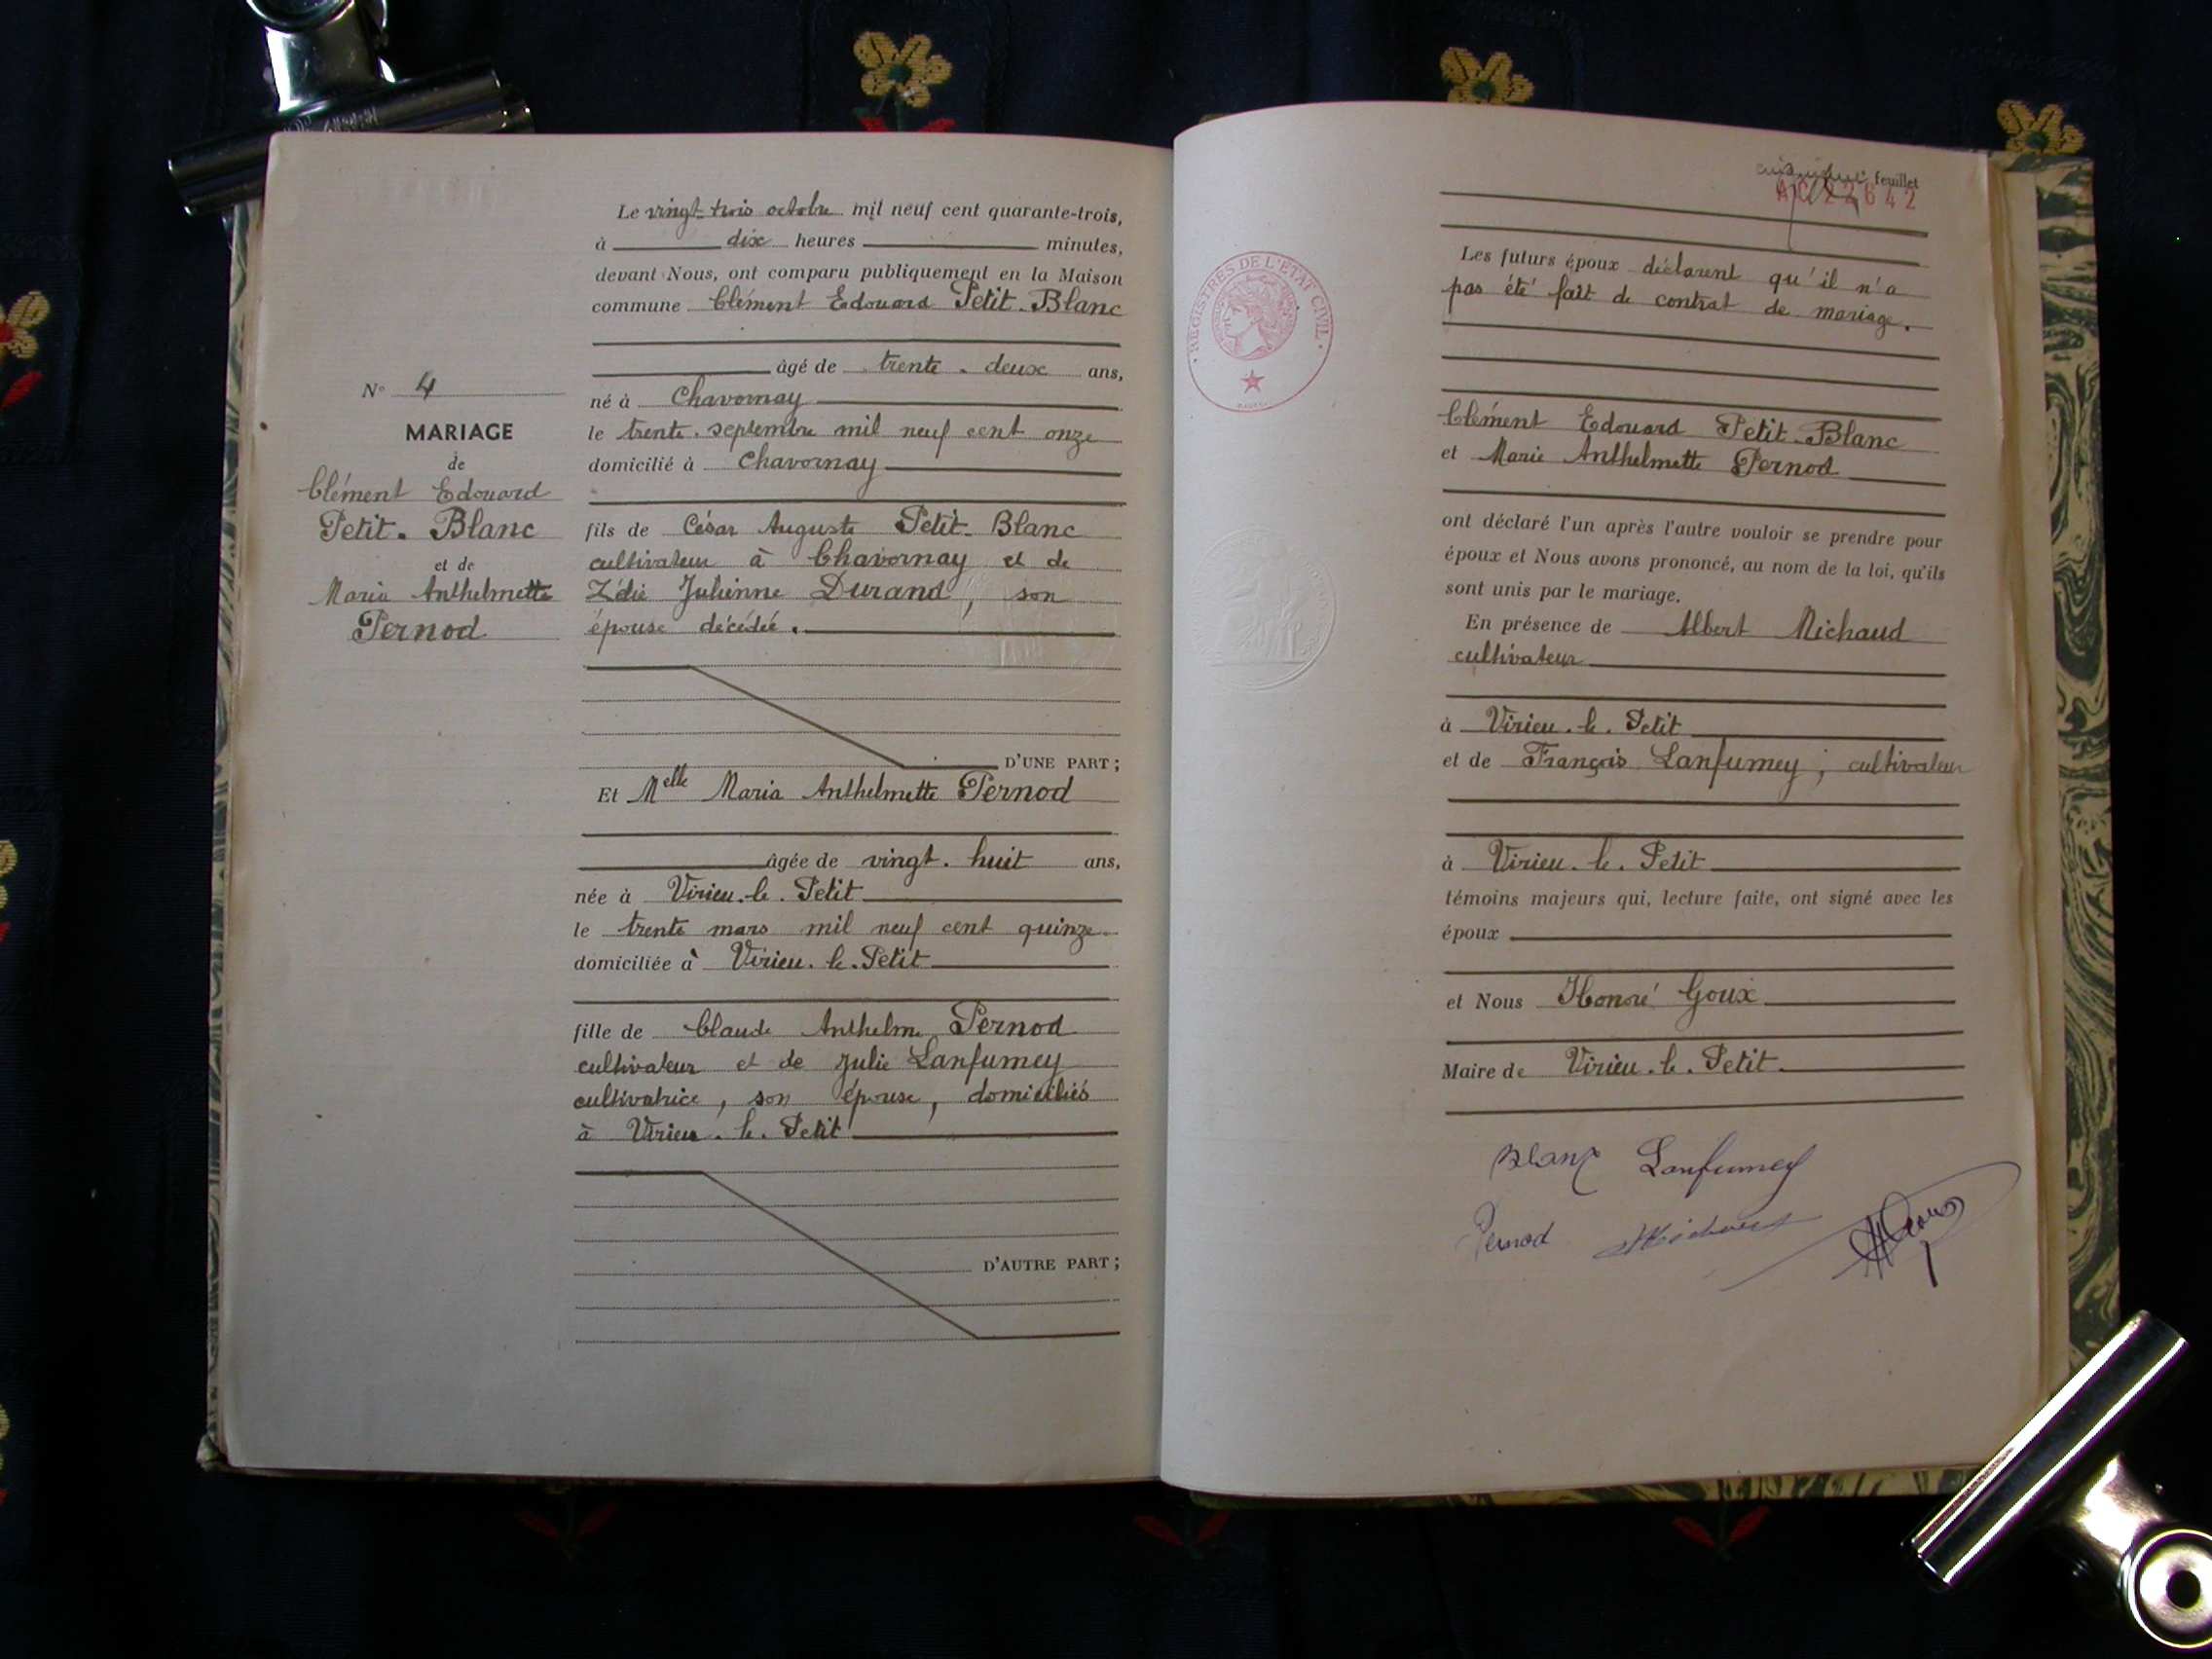 Le vingt-trois octobre mil neuf cent quarante-trois,
à dix heures minutes,
devant Nous, ont comparu publiquement en la Maison
commune Clément Edouard Petit-Blanc
âgé de trente-deux ans,
né à Chavornay
le trente septembre mil neuf cent onze
domicilié à Chavornay
fils de César Auguste Petit-Blanc
cultivateur à Chavornay et de
Zélie Julienne Durand, son
épouse décédée.
D'UNE PART ;
Et Melle Maria Anthelmette Pernod
âgée de vingt-huit ans,
née à Virieu-le-Petit
le trente mars mil neuf cent quinze
domiciliée à Virieu-le-Petit
fille de Claude Anthelme Pernod
cultivateur et de Julie Lanfumey
cultivatrice, son épouse, domiciliés
à Virieu-le-Petit
D'AUTRE PART ;
N° 4
MARIAGE
de
Clément Edouard
Petit-Blanc
et de
Maria Anthelmette
Pernod
feuillet
REGISTRES DE L'ÉTAT CIVIL
Les futurs époux déclarent qu'il n'a
pas été fait de contrat de mariage.
Clément Edouard Petit-Blanc
et Marie Anthelmette Pernod
ont déclaré l'un après l'autre vouloir se prendre pour
époux et Nous avons prononcé, au nom de la loi, qu'ils
sont unis par le mariage.
En présence de Albert Michaud
cultivateur
à Virieu-le-Petit
et de François Lanfumey, cultivateur
à Virieu-le-Petit
témoins majeurs qui, lecture faite, ont signé avec les
époux
et Nous Honoré Goux
Maire de Virieu-le-Petit.
Blanc Lanfumey
Pernod Michaud HGoux